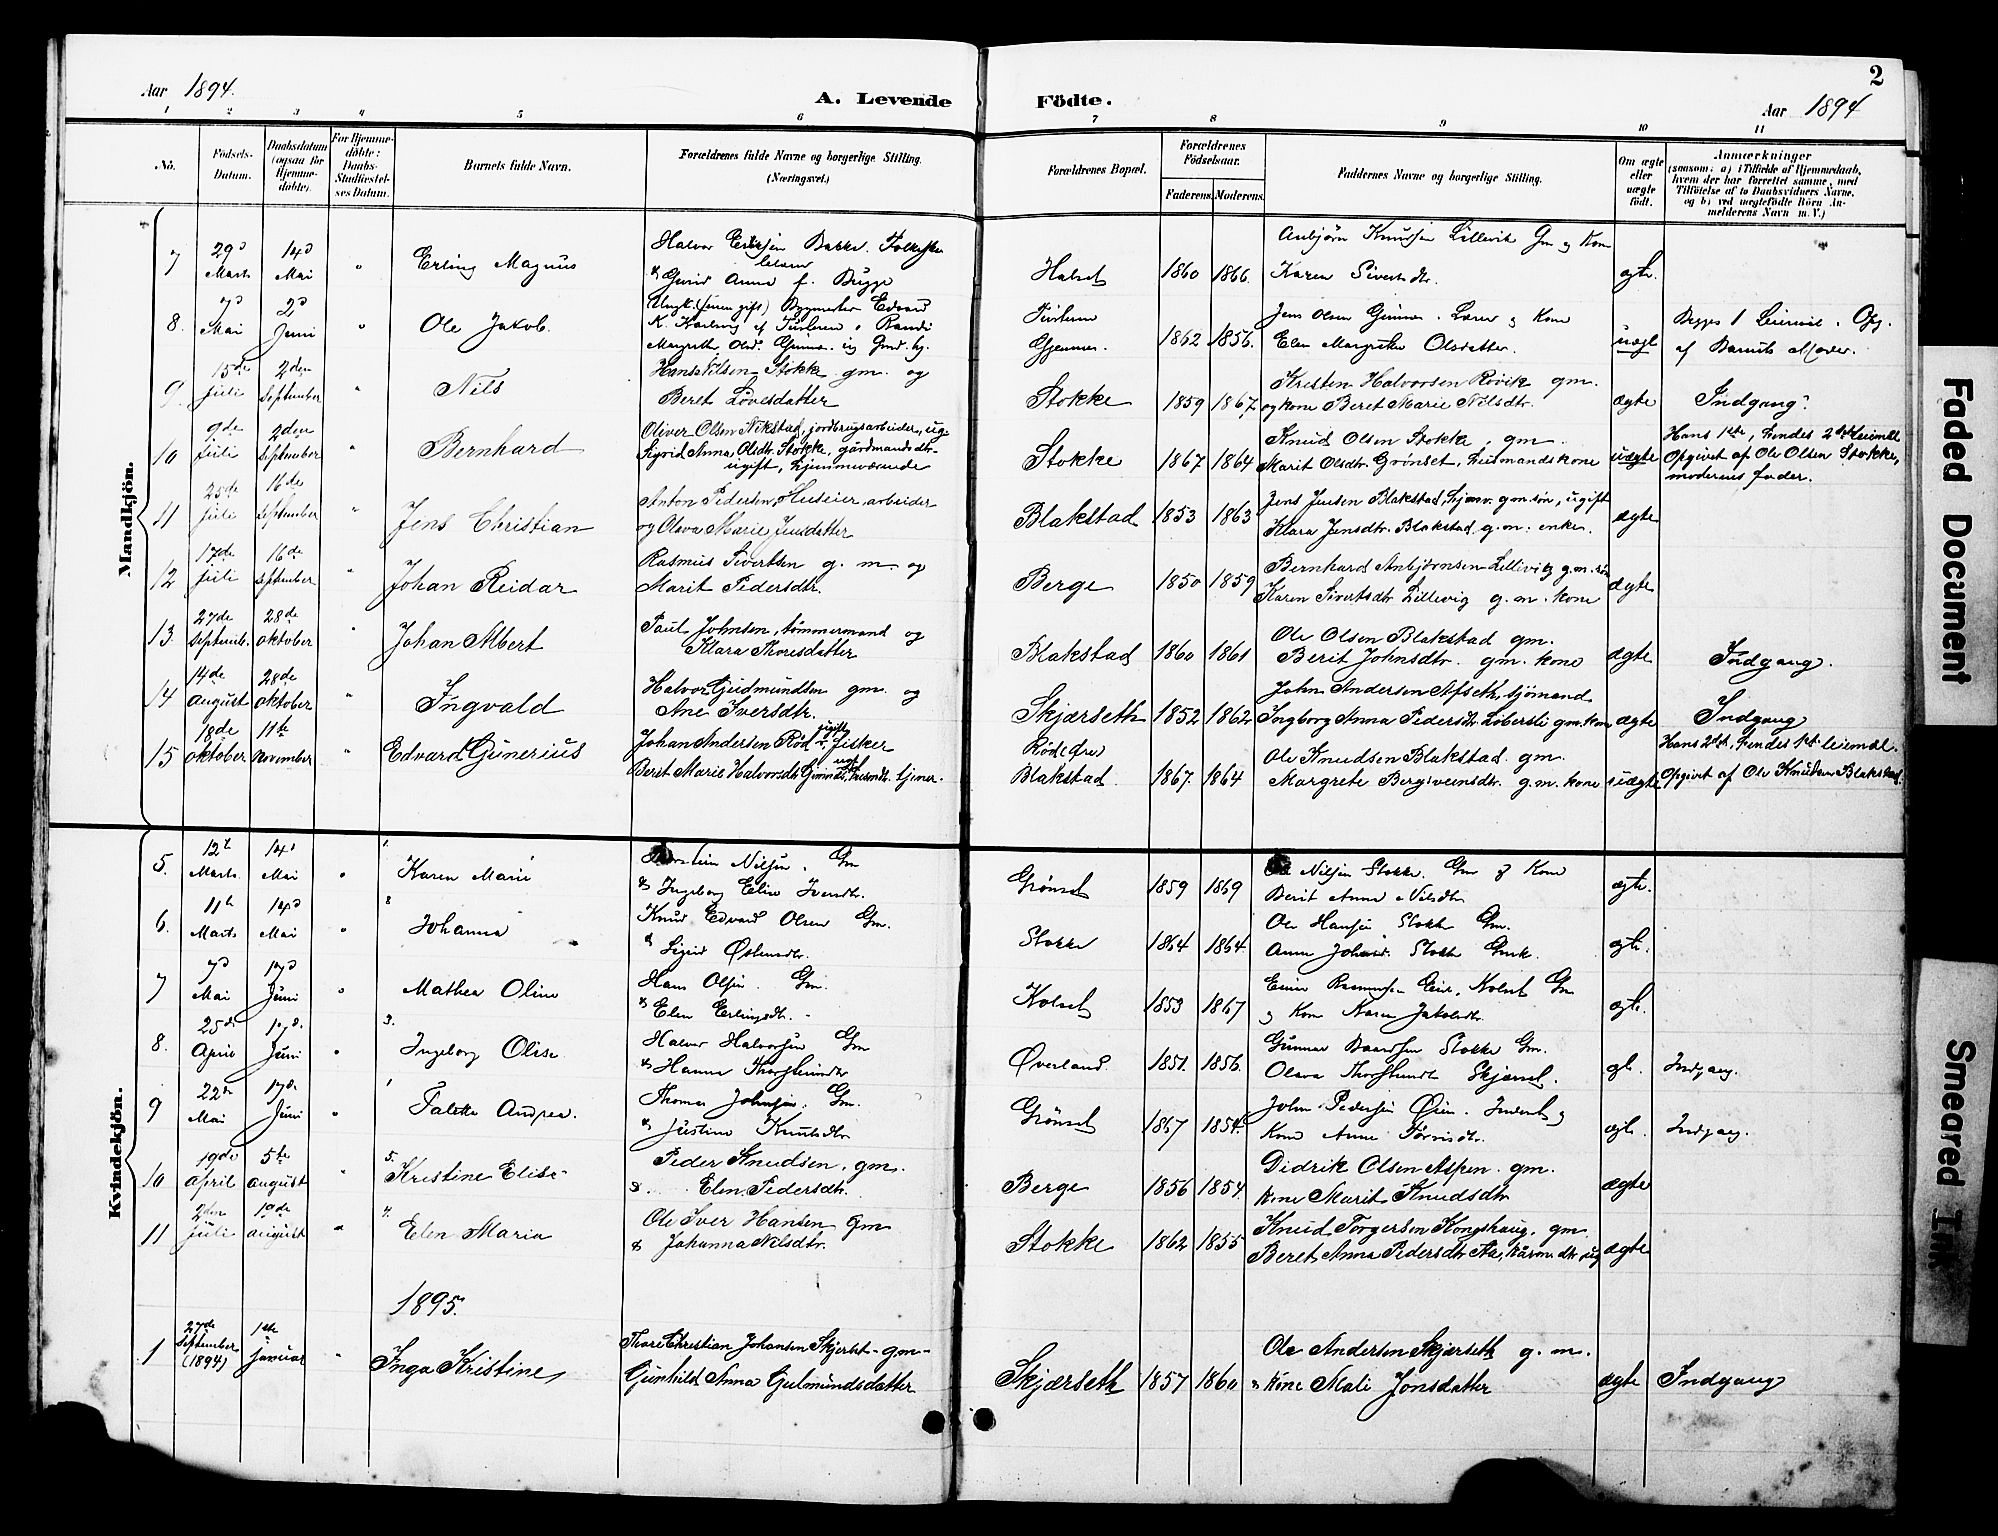 2
Aar 1894.
A. Levende Födte.
Aar 1894
1 2 3 4 5 6 7 8 9 10 11
No. Födsels-Datum. Daabsdatum (ogsaa for Hjemme-döbte). For Hjemme-döbte: Daabs-Stadfæstel-ses Datum. Barnets fulde Navn. Forældrenes fulde Navne og borgerlige Stilling. (Næringsvei.) Forældrenes Bopæl. Forældrenes Födselsaar. Faderens. Moderens. Faddernes Navne og borgerlige Stilling. Om ægte eller uægte födt. Anmærkninger (saasom: a) i Tilfælde af Hjemmedaab, hvem der har forrettet samme, med Tilföielse af to Daabsvidners Navne, og b) ved uægtefödte Börn Anmelderens Navn m. V.)
Mandkjön.
7 29d Marts 14d Mai " Erling Magnus Halvor Eriksen Bakke & Gurid Anna f. Brygge Halset 1860 1866. Anbjørn Knudsen Lillevik Gm og Kone Karen Sivertsdtr. ægte.
8. 7d Mai 2d Juni " Ole Jakob. Margrethe Olsd. 1862 1856. Jens Olsen Gjennes. Lærer og Kone Elen Margrethe Olsdatter. uægt af Barnets Moder.
9. 15de Juli 2den September " Nils Hans Nilsen Stokke gm. og Beret Lovesdatter Stokke 1859 1867. Kristen Halvorsen Røvik gm. og kone Beret Marie Nilsdtr. ægte Indgang.
10 9de Juli 2den September " Bernhard Oliver Olsen Nekstad, jordbrugsarbeider, ug. Sigrid Anna Olsdtr. Stokke, gårdmandsdtr. ugift, hjemmeværende Stokke 1867 1864 Knud Olsen Stokke, gm. Marit Olsdtr. Grønset, husmandskone uægte Hans 1ste, hendes 2det leiemål Opgivet af Ole Olsen Stokke, moderens fader.
11 25de Juli 16de September " Jens Christian Anton Pedersen, Huseier, arbeider og Olava Marie Jensdatter Blakstad 1853 1863 Jens Jensen Blakstad, hjemv. gm. søn, ugift Klara Jensdtr. Blakstad g.m. enke. ægte
12 17de Juli 16de September " Johan Reidar Rasmus Sivertsen g. m. og Marit Pedersdtr. Berge 1850 1859 Bernhard Anbjørnsen Lillevig g.m. søn Karen Sivertsdtr. Lillevig g. m. kone ægte
13. 27de Septemb. 28de oktober " Johan Albert Paul Johnsen, tømmermand og Klara Thoresdatter Blakstad 1860 1861 Ole Olsen Blakstad gm. Berit Johnsdtr. gm. kone ægte Indgang.
14 14de August 28de oktober " Ingvald Halvor Gudmundsen gm. og Ane Iversdtr. Skjærseth 1852 1862 John Andersen Afseth, sjömand Ingborg Anna Pedersdtr. Løberøli gm. kone ægte Indgang
15 18de oktober 11te November " Edvard Gunerius Johan Andersen Rød gift fisker Berit Marie Halvorsdtr. Røde (Øre) Blakstad. 1867. 1864 Ole Knudsen Blakstad gm. Margrete Bergsveinsdtr. g.m. kone uægte Hans 2det, hendes 1ste leiemål. Opgivet af Ole Knudsen Blakstad.
Kvindekjön.
5. 12t Marts 14d Mai " 1. Karen Marie Nilsen. Gm & Ingeborg Elise Iversdtr. Grønset 1859 1869 Ole Nilsen Stokke. Gm og Kone Berit Anna Nilsdtr ægte.
6. 11t Marts 14d Mai " 2 Johanna Knud Edvard Olsen Gm. & Sigrid Østensdtr. Stokke 1864 1864. Ole Hansen Stokke Gm. Anna Johnsd. Stokke Gmk. ægte.
7 7d Mai 17d Juni " Mathea Oline Hans Olsen. Gm. & Elen Erlingsdtr. Kolset 1853 1867 Kolset Gm og Kone Karen Jakobsdtr. ægte.
8. 25d April 17d. Juni " 3. Ingeborg Olise Halvor Halvorsen Gm & Hanna Øverland. 1851. 1856. Gunnar Baardsen Stokke Gm. Olava Skjærset. ægte. Indgang.
9 22d Mai 17d Juni " 1 Andrea. Thomas Johnsen. Gm. & Justine Knutsdtr. Grønset 1867 1854. John Pedersen Øien. Inderst og Kone Anne ægte. Indgang.
10 19de April 5te August " 5. Kristine Elise Peder Knudsen, gm. & Elen Pedersdtr. Berge 1856 1854. Didrik Olsen Aspen. gm. kone Marit Knudsdtr ægte
11 2den Juli 19de August " 4. Elen Maria Ole Iver Hansen gm & Johanna Nilsdtr. Stokke 1862 1855 Knud Torgersen Kongshaug, gm. Beret Anna Pedersdtr. Aa, ægte
1895.
1 27de September (1894) 1ste Januar " Inga Kristine Thore Christian Johansen Skjerset gm Gunhild Anna Gulmundsdatter Skjærseth 1857 1860 Ole Andersen Skjærseth g. m. & kone Mali Jonsdatter ægte Indgang
Faded Document
Smeared Ink